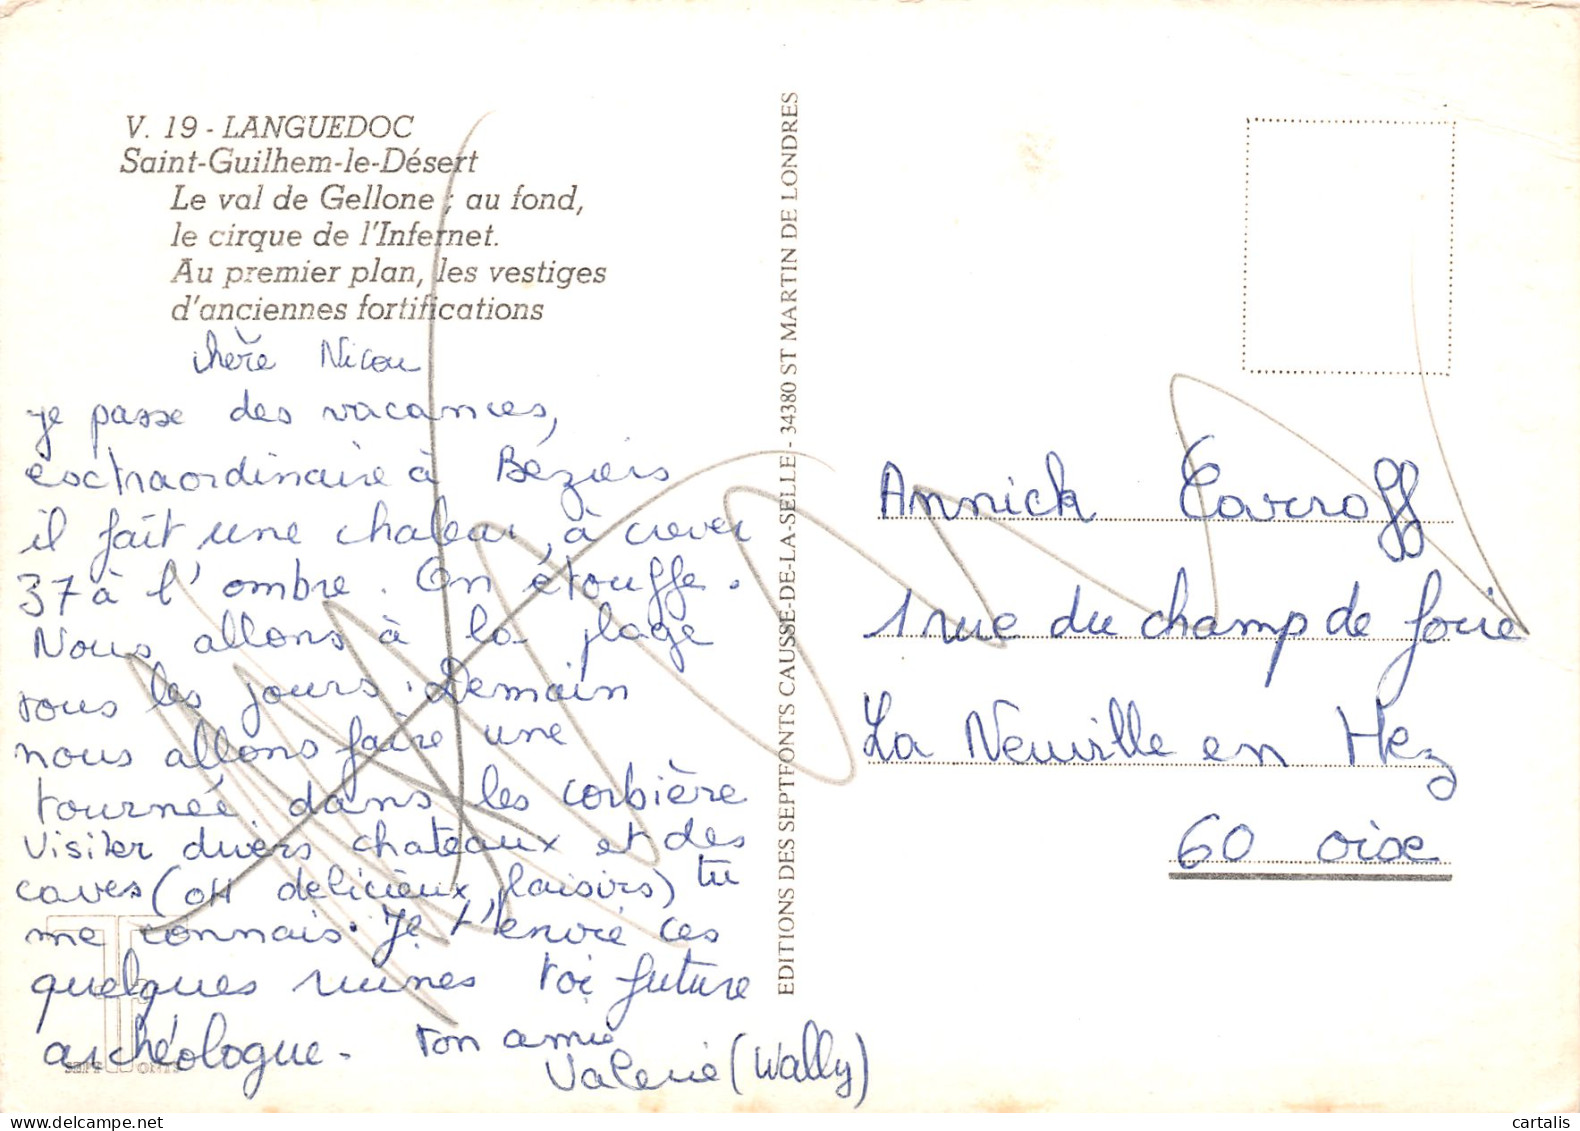 V. 19 - LANGUEDOC
Saint-Guilhem-le-Désert
Le val de Gellone ; au fond,
le cirque de l'Infernet.
Au premier plan, les vestiges
d'anciennes fortifications
chère Nicou
je passe des vacances,
esctraordinaire à Béziers
il fait une chaleur, à crever
37 à l'ombre. On étouffe.
Nous allons à la plage
tous les jours. Demain
nous allons faire une
tournée dans les corbière
visiter divers chateaux et des
caves (oH délicieux plaisirs) tu
me connais. Je t'envoie ces
quelques ruines toi future
archéologue. ton amie
Valerie (Wally)
SEPT FONTS
EDITIONS DES SEPTFONTS CAUSSE-DE-LA-SELLE - 34380 ST MARTIN DE LONDRES
Annick Carroff
1 rue du champ de foire
La Neuville en Hez
60 oise
cartalis